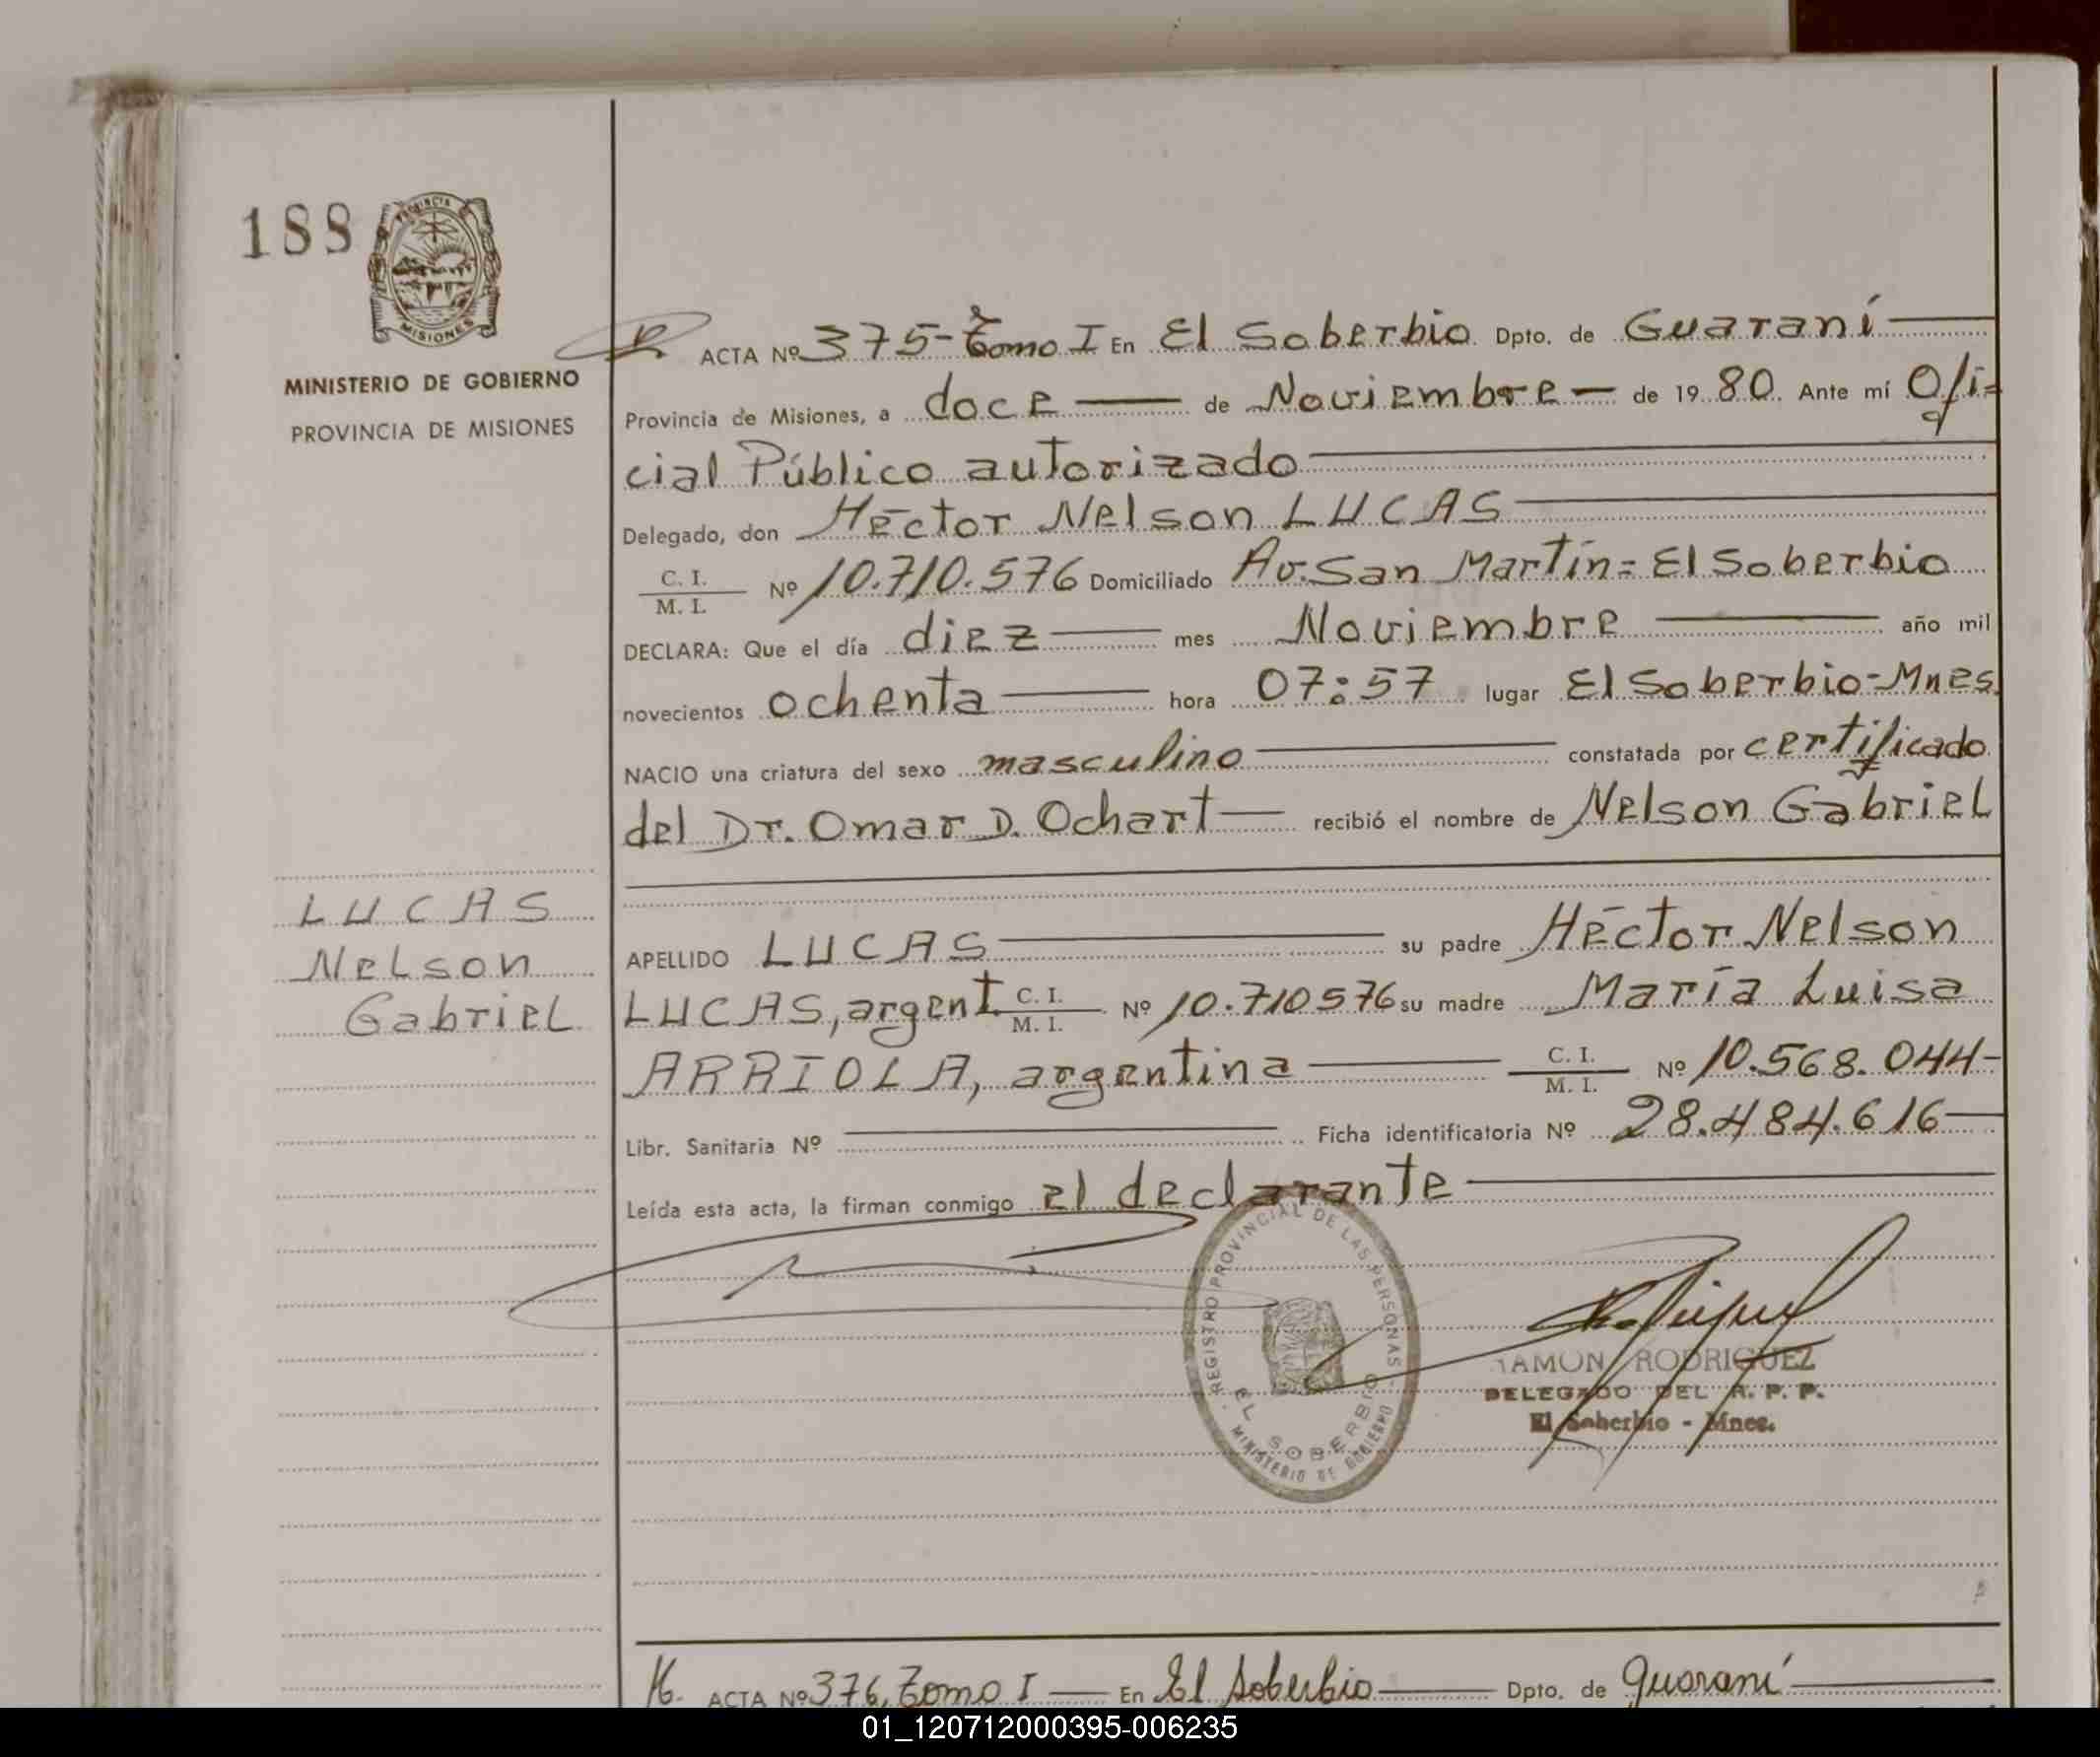 188
PROVINCIA
MISIONES
MINISTERIO DE GOBIERNO
PROVINCIA DE MISIONES
ACTA Nº 375-Tomo I En El Soberbio Dpto. de Guaraní
Provincia de Misiones, a doce de Noviembre de 19 80 Ante mí Ofi=
cial Público autorizado
Delegado, don Héctor Nelson LUCAS
C. I.
M. I. Nº 10.710.576 Domiciliado Av. San Martín= El Soberbio
DECLARA: Que el día diez mes Noviembre año mil
novecientos ochenta hora 07:57 lugar El Soberbio-Mnes.
NACIO una criatura del sexo masculino constatada por certificado
del Dr. Omar D. Ochart recibió el nombre de Nelson Gabriel
LUCAS
Nelson
Gabriel
APELLIDO LUCAS su padre Héctor Nelson
LUCAS, argent C. I. M. I. Nº 10.710576 su madre María Luisa
ARRIOLA, argentina C. I. M. I. Nº 10.568.044-
Libr. Sanitaria Nº Ficha identificatoria Nº 28.484.616
Leída esta acta, la firman conmigo el declarante
REGISTRO PROVINCIAL DE LAS PERSONAS
EL SOBERBIO
MINISTERIO DE GOBIERNO
RAMON RODRIGUEZ
DELEGADO DEL R. P. P.
El Soberbio - Mnes.
ACTA Nº 376, Tomo I En El Soberbio Dpto. de Guaraní
01_120712000395-006235